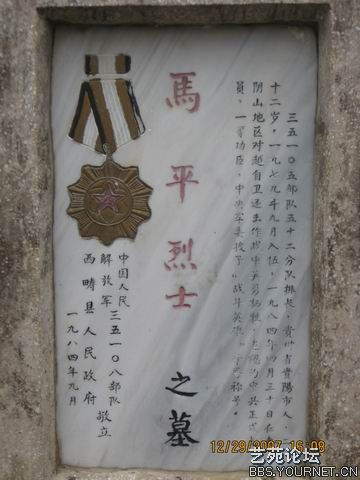 三五一〇五部队五十二分队排长，贵州省貴陽市人，
十二岁，一九七九年九月入伍，一九八四年四月三十日在
阴山地区对越自卫还击作战中英勇牺牲，中共正式
員，一等功臣，中央军委授予“战斗英雄”称号。
馬平烈士之墓
中国人民
解放军三五一〇八部队
西畴县人民政府
敬立
一九八四年九月
12/29/2007 16:09
艺苑论坛
BBS.YOURNET.CN